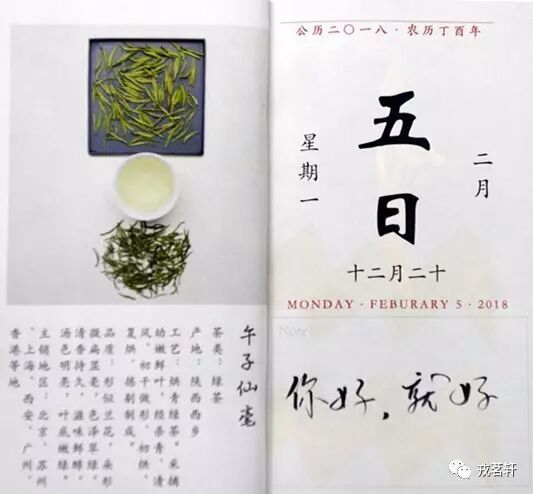 午子仙毫
茶类：绿茶
产地：陕西西乡
工艺：烘青绿茶。采摘
幼嫩鲜叶，经杀青、清
风、初干做形、初烘、
复烘、拣剔制成。
品质：形似兰花，朵形
微扁显毫，色泽翠绿，
清香持久，滋味鲜醇，
汤色明亮，叶底嫩绿
主销地区：北京、苏州
、上海、西安、广州、
香港等地
公历二〇一八·农历丁酉年
二月
五日
星期一
十二月二十
MONDAY · FEBURARY 5 · 2018
Notes:
你好，就好
戎茗轩